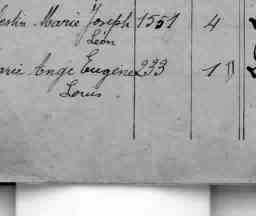 estin Marie Joseph 1551 4
Léon
arie Ange Eugène 233 1
Louis